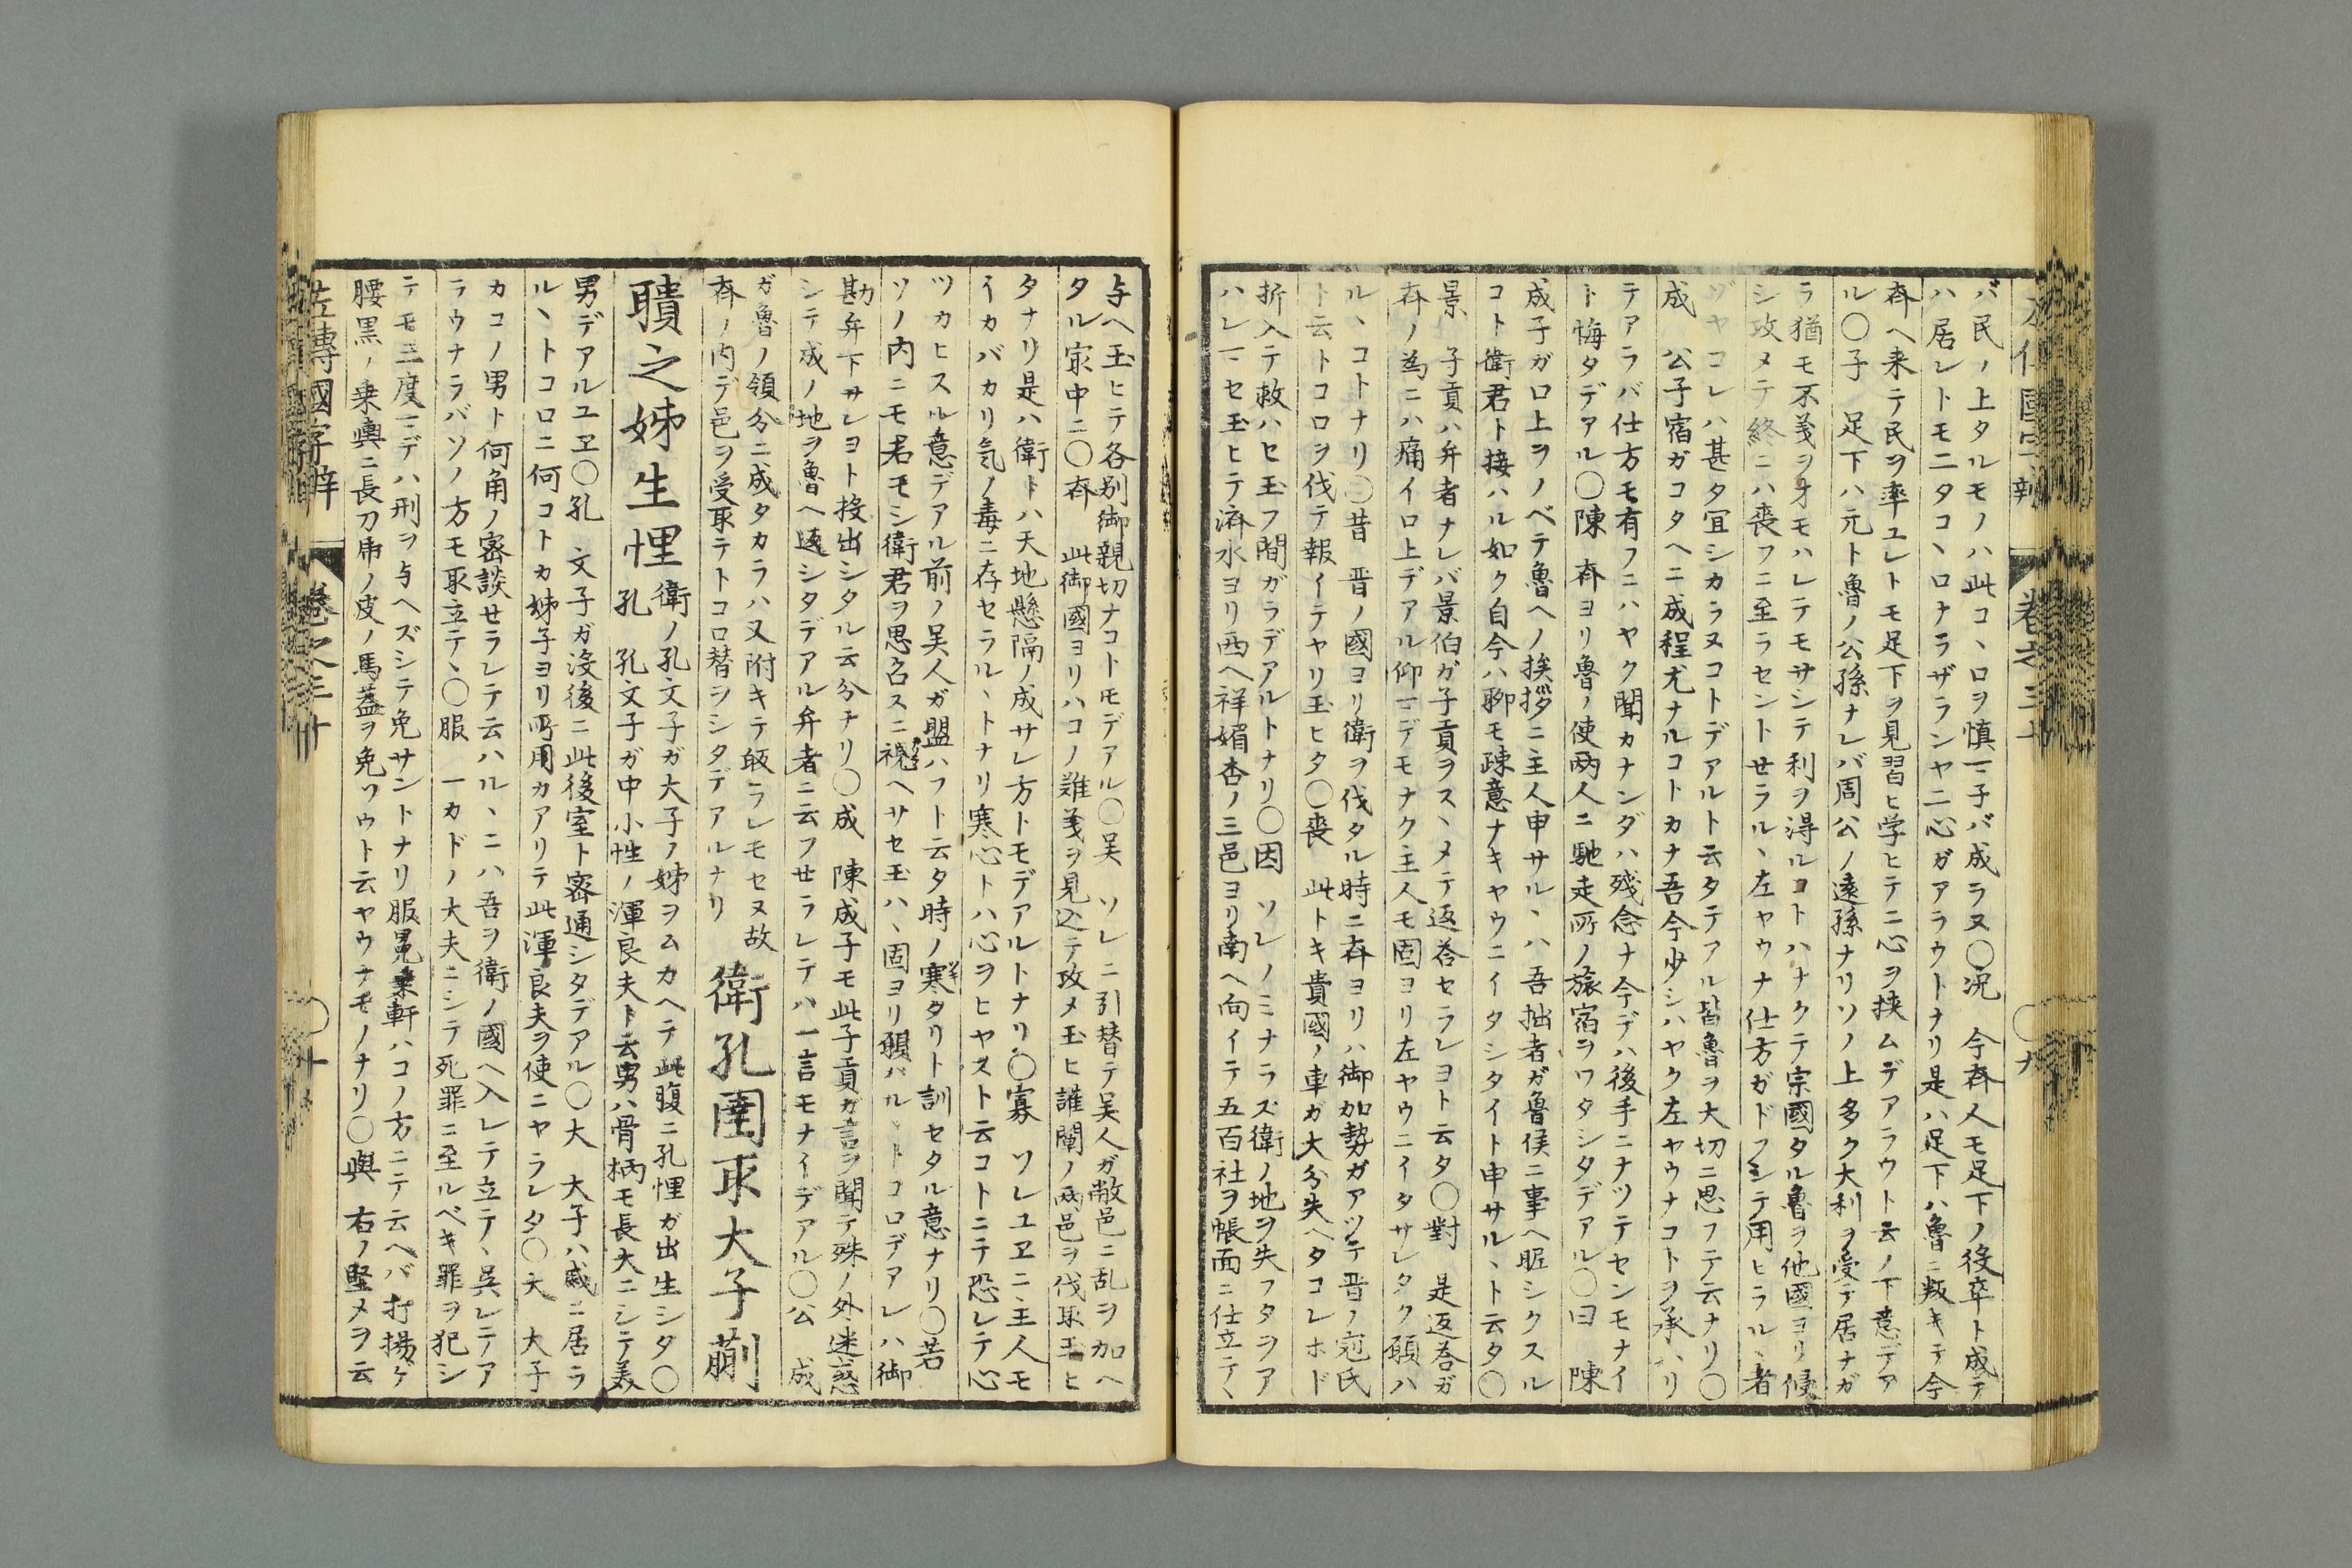 バ民ノ上タルモノハ此コヽロヲ慎マ子バ成ラヌ〇況　今斉人モ足下ノ役卒ト成テ
ハ居レトモ二タコヽロナラザランヤ二心ガアラウトナリ是ハ足下ハ魯ニ叛キテ今
斉ヘ来テ民ヲ率ユレトモ足下ヲ見習ヒ学ヒテ二心ヲ挟ムデアラウト云ノ下意デア
ル〇子　足下ハ元ト魯ノ公孫ナレバ周公ノ遠孫ナリソノ上多ク大利ヲ受テ居ナガ
ラ猶モ不義ヲオモハレテモサシテ利ヲ得ルコトハナクテ宗國タル魯ヲ他國ヨリ侵
シ攻メテ終ニハ喪フニ至ラセントセラルヽ左ヤウナ仕方ガドフシテ用ヒラルヽ者
ヅヤコレハ甚タ冝シカラヌコトデアルト云タテアル皆魯ヲ大切ニ思フテ云ナリ〇
成　公子宿ガコタヘニ成程尤ナルコトカナ吾今少シハヤク左ヤウナコトヲ承ハリ
テアラバ仕方モ有フニハヤク聞カナンダハ残念ナ今デハ後手ニナツテセンモナイ
ト悔タデアル〇陳　斉ヨリ魯ノ使両人ニ馳走所ノ旅宿ヲワタシタデアル〇曰　陳
成子ガ口上ヲノベテ魯ヘノ挨拶ニ主人申サルヽハ吾拙者ガ魯侯ニ事ヘ眤シクスル
コト衛君ト接ハル如ク自今ハ聊モ疎意ナキヤウニイタシタイト申サルヽト云タ〇
景　子貢ハ弁者ナレバ景伯ガ子貢ヲスヽメテ返荅セラレヨト云タ〇對　是返荅ガ
斉ノ為ニハ痛イロ上デアル仰マデモナク主人モ固ヨリ左ヤウニイタサレタク願ハ
ルヽコトナリ〇昔　晋ノ國ヨリ衛ヲ伐タル時ニ斉ヨリハ御加勢ガアツテ晋ノ冠氏
ト云トコロヲ伐テ報イテヤリ玉ヒタ〇喪　此トキ貴國ノ車ガ大分失ヘタコレホド
折入テ救ハセ玉フ間ガラデアルトナリ〇因　ソレノミナラズ衛ノ地ヲ失フタヲア
ハレマセ玉ヒテ済水ヨリ西ヘ祥媚杏ノ三邑ヨリ南ヘ向イテ五百社ヲ帳面ニ仕立テヽ
与ヘ玉ヒテ各別御親切ナコトモデアル〇吴　ソレニ引替テ吴人ガ敝邑ニ乱ヲ加ヘ
タル家中ニ〇斉　此御國ヨリハコノ難義ヲ見込テ攻メ玉ヒ讙闡ノ両邑ヲ伐取玉ヒ
タナリ是ハ衛トハ天地懸隔ノ成サレ方トモデアルトナリ〇寡　ソレユヱニ主人モ
イカバカリ気ノ毒ニ存セラルヽトナリ寒心トハ心ヲヒヤスト云コトニテ恐レテ心
ツカヒスル意デアル前ノ吴人ガ盟ハフト云タ時ノ寒タリト訓セタル意ナリ〇若
ソノ内ニモ君モシ衛君ヲ思召スニ視ヘサセ玉ハヽ固ヨリ願バルヽトコロデアレハ御
勘弁下サレヨト挨出シタル云分ナリ〇成　陳成子モ此子貢ガ言ヲ聞テ殊ノ外迷惑
シテ成ノ地ヲ魯ヘ返シタデアル弁者ニ云フセラレテハ一言モナイデアル〇公　成
ガ魯ノ領分ニ成タカラハ又附キテ皈ラレモセヌ故
斉ノ内デ邑ヲ受取テトコロ替ヲシタデアルナリ
衛孔圉取大子蒯
聵之姊生悝
衛ノ孔文子ガ大子ノ姊ヲムカヘテ此腹ニ孔悝ガ出生シタ〇
孔　孔文子ガ中小性ノ渾良夫ト云男ハ骨柄モ長大ニシテ美
男デアルユヱ〇孔　文子ガ沒後ニ此後室ト密通シタデアル〇大　大子ハ戚ニ居ラ
ルヽトコロニ何コトカ姊子ヨリ所用カアリテ此渾良夫ヲ使ニヤラレタ〇大　大子
カコノ男ト何角ノ密談セラレテ云ハルヽニハ吾ヲ衛ノ國ヘ入レテ立テヽ呉レテア
ラウナラバソノ方モ取立テヽ〇服　一カドノ大夫ニシテ死罪ニ至ルベキ罪ヲ犯シ
テモ三度マデハ刑ヲ与ヘズシテ免サントナリ服冕乗軒ハコノ方ニテ云ヘバ打揚ケ
腰黒ノ乗輿ニ長刀帋ノ皮ノ馬葢ヲ免ソウト云ヤウナモノナリ〇與　右ノ堅メヲ云
左傳國字辯　巻之三十　〇十